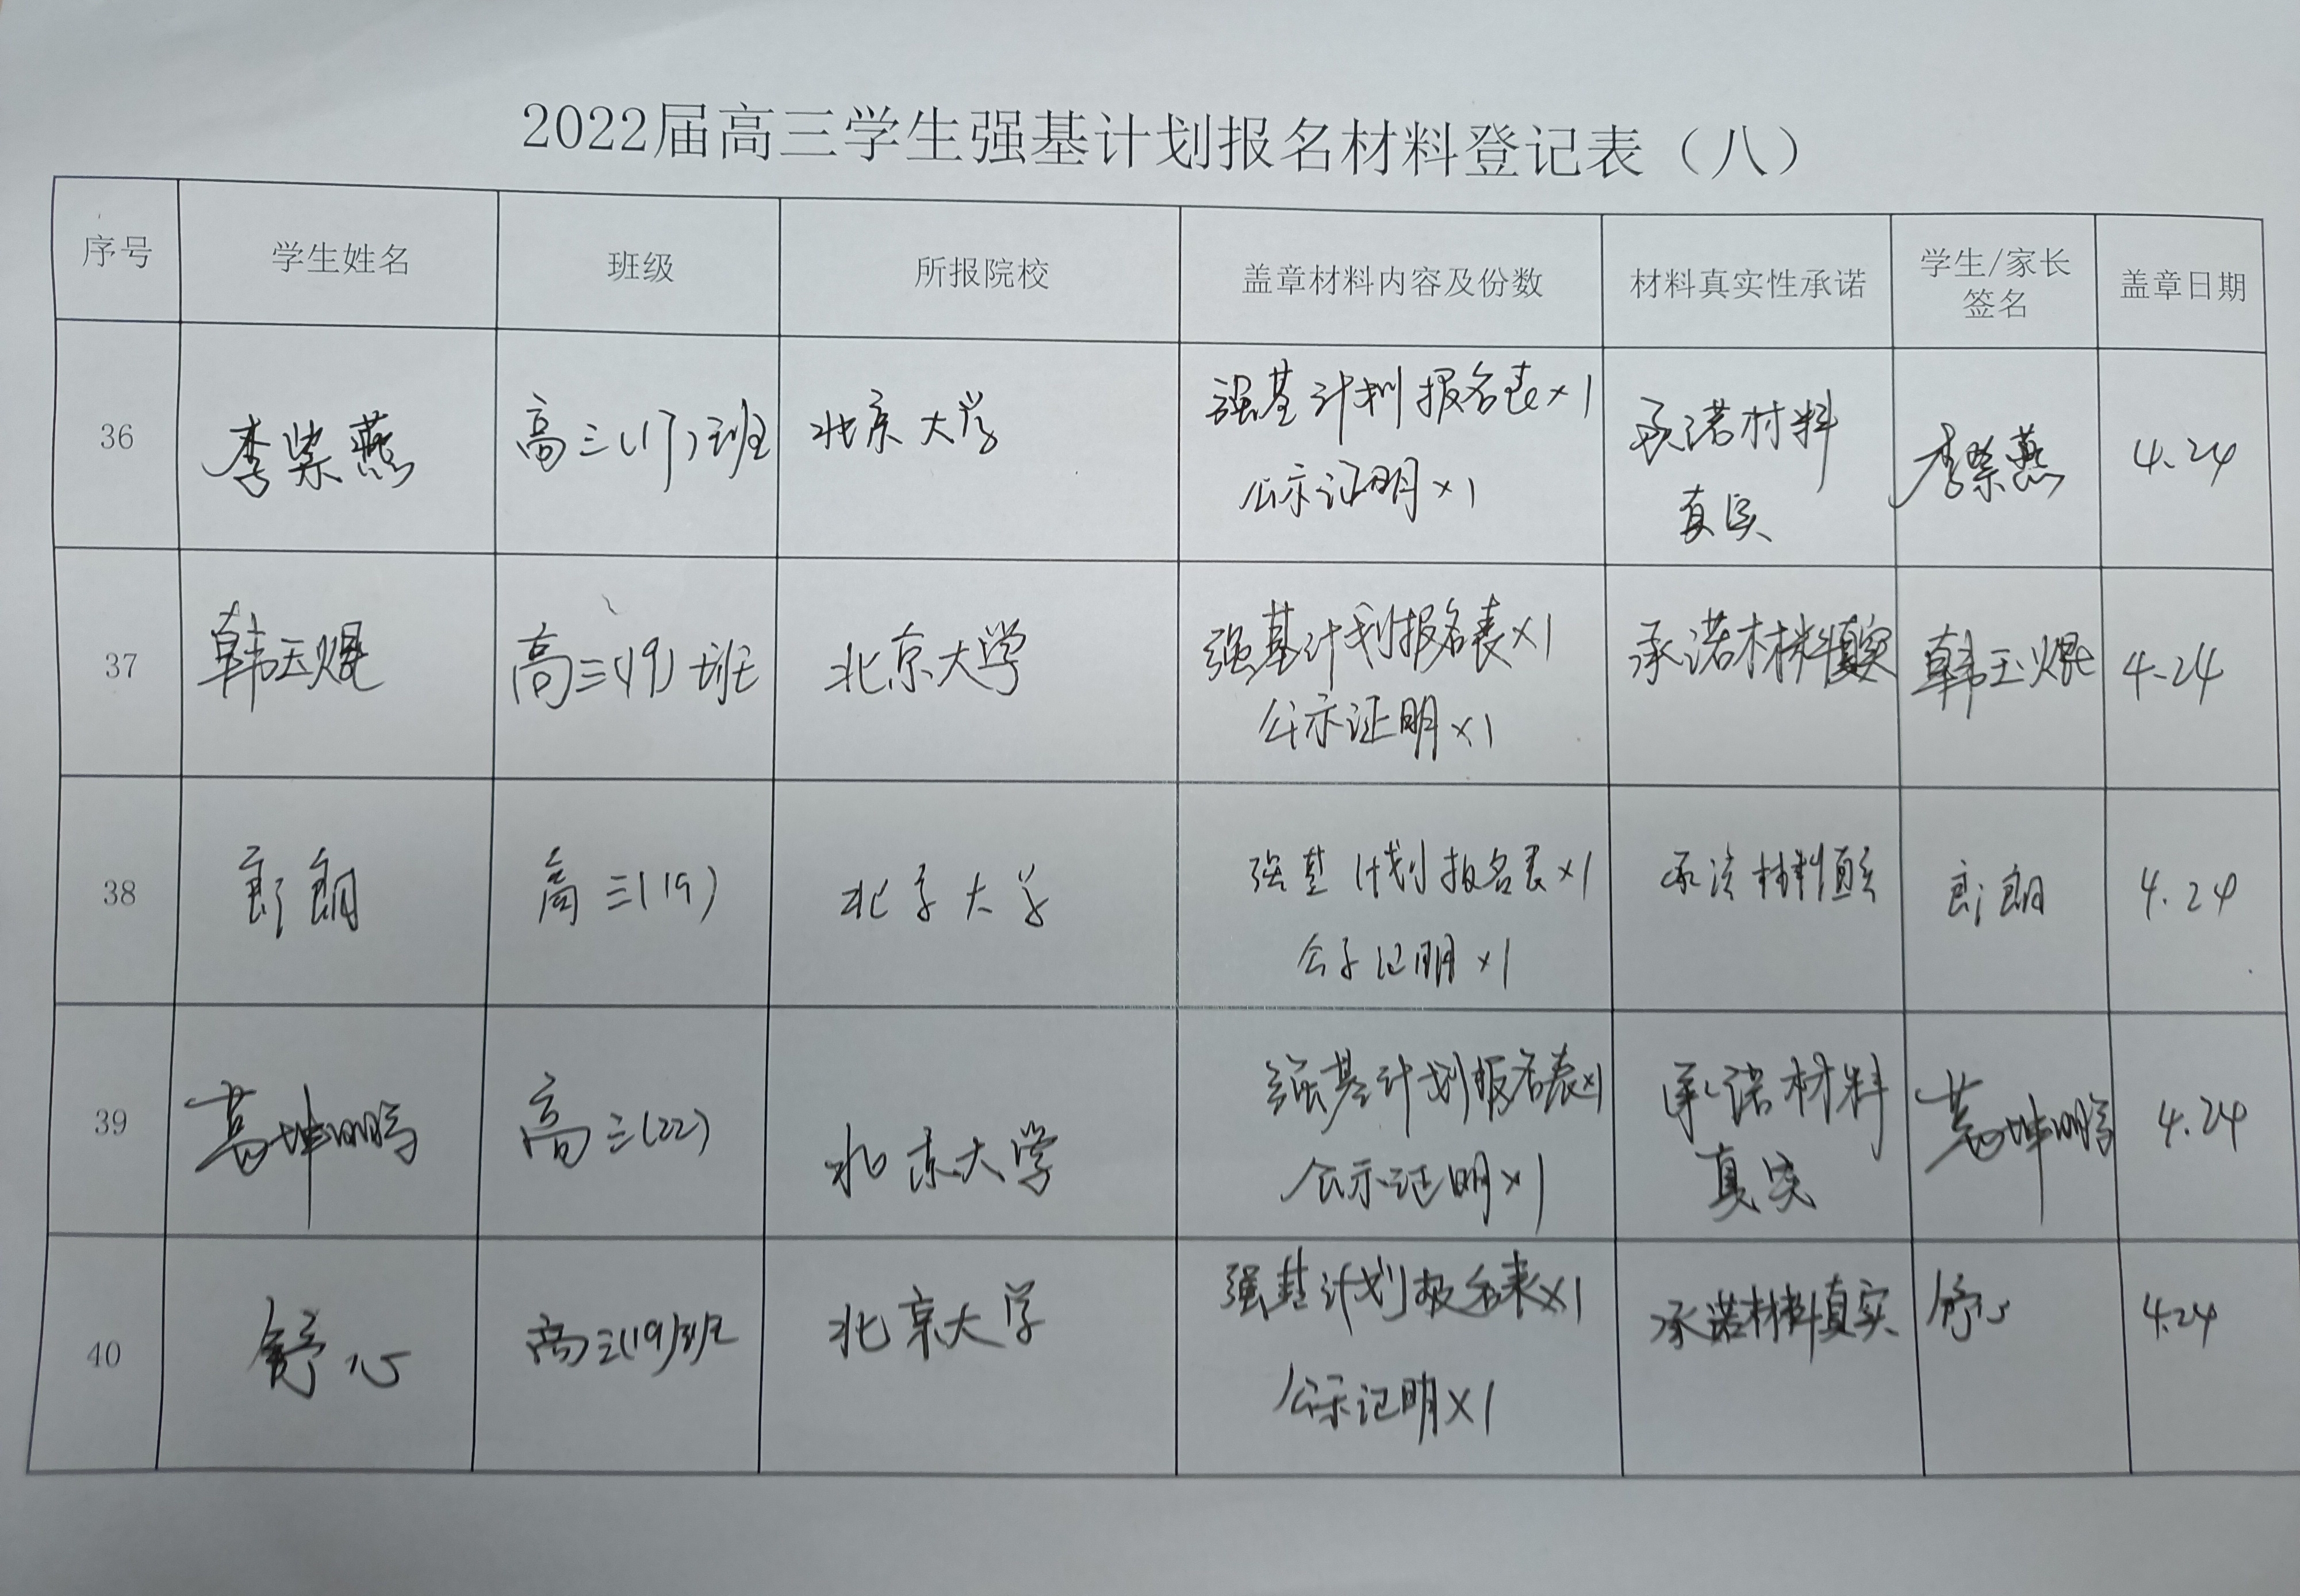 2022届高三学生强基计划报名材料登记表（八）
序号 学生姓名 班级 所报院校 盖章材料内容及份数 材料真实性承诺 学生/家长签名 盖章日期
36 李柴燕 高三(17)班 北京大学 强基计划报名表×1 承诺材料 李柴燕 4.24
公示证明×1 真实
37 韩玉焜 高三(19)班 北京大学 强基计划报名表×1 承诺材料真实 韩玉焜 4.24
公示证明×1
38 朗 高三(19) 北京大学 强基计划报名表×1 承诺材料真实 朗 4.24
公示证明×1
39 葛坤鹏 高三(22) 北京大学 强基计划报名表×1 承诺材料 葛坤鹏 4.24
公示证明×1 真实
40 舒心 高三(19)班 北京大学 强基计划报名表×1 承诺材料真实 舒心 4.24
公示证明×1